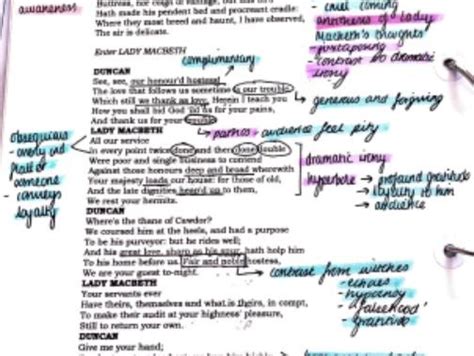 awareness
Buttress, nor coign of vantage, but this
Hath made his pendent bed and procreant cradle:
Where they most breed and haunt, I have observed,
The air is delicate.
Enter LADY MACBETH
complimentary
cruel coming
antithesis of Lady
Macbeth's thoughts
- juxtaposing
- contrast so dramatic
irony
DUNCAN
See, see, our honour'd hostess!
The love that follows us sometime is our trouble,
Which still we thank as love. Herein I teach you
How you shall bid God for your pains,
And thank us for your trouble
generous and forgiving
LADY MACBETH
pathos - audience feel pity
All our service
In every point twice done and then done double
Were poor and single business to contend
Against those honours deep and broad wherewith
Your majesty loads our house: for those of old,
And the late dignities heap'd up to them,
We rest your hermits.
obsequious
- overly
someone
- conveys
loyalty
dramatic irony
hyperbole
profound gratitude
loyalty to him
audience
DUNCAN
Where's the thane of Cawdor?
We coursed him at the heels, and had a purpose
To be his purveyor: but he rides well;
And his great love, sharp as his spur, hath holp him
To his home before us. Fair and noble hostess,
We are your guest to-night.
contrast from witches
- echoes
- hypocrisy
- falsehood
- gratitude
LADY MACBETH
Your servants ever
Have theirs, themselves and what is theirs, in compt,
To make their audit at your highness' pleasure,
Still to return your own.
DUNCAN
Give me your hand;